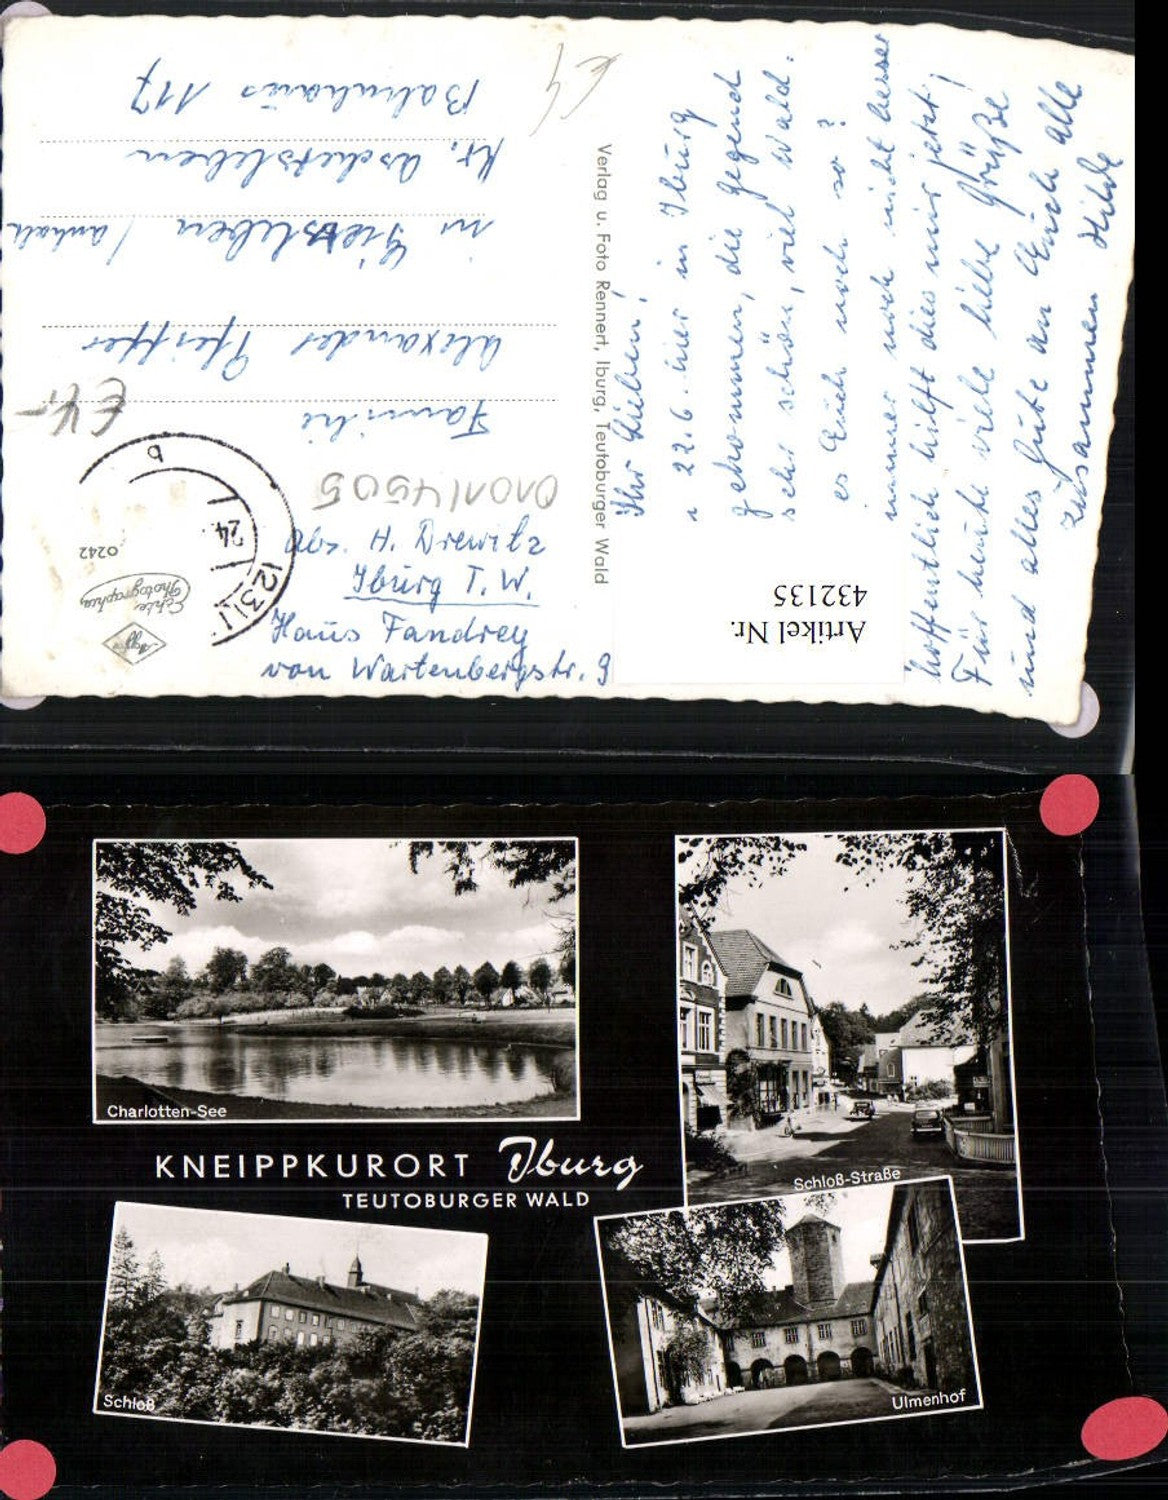 Ihr Lieben!
22.6. hier in Iburg
gekommen, die Gegend
sehr schön, viel Wald.
es Euch noch so?
immer noch nicht besser
hoffentlich hilft dies mir jetzt!
Für heute viele liebe Grüße
und alles Gute an Euch alle
zusammen Hilde
Verlag u. Foto Rennert, Iburg, Teutoburger Wald
Familie
Alexander Pfeiffer
in Giersleben / Anhalt
Kr. Aschersleben
Bahnhaus 117
€4,-
€4
01014505
Abs. H. Drewitz
Iburg T.W.
Haus Fandrey
von Wartenbergstr. 9
(23)
24.
b
0242
Echte Photographie
Agfa
Artikel Nr.
432135
Charlotten-See
Schloß-Straße
KNEIPPKURORT Iburg
TEUTOBURGER WALD
Schloß
Ulmenhof